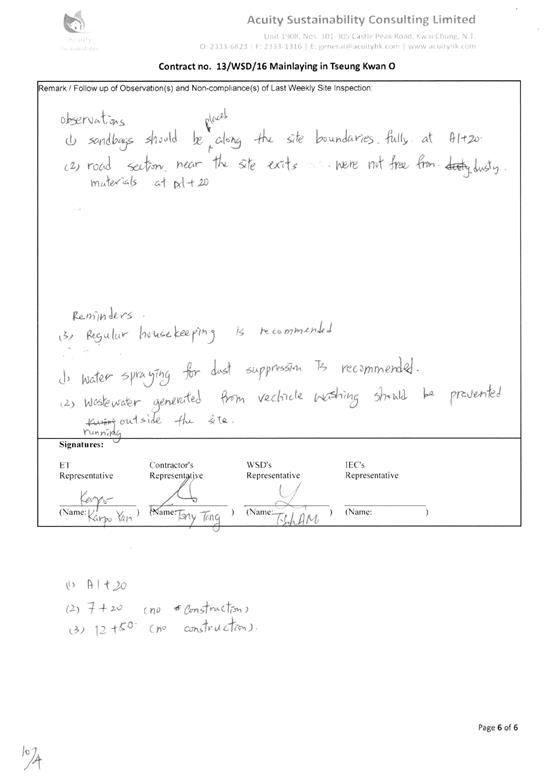 Acuity Sustainability Consulting Limited
Unit 1908, Nos. 301-305 Castle Peak Road, Kwai Chung, N.T.
O: 2333-6823 | F: 2333-1316 | E: general@acuityhk.com | www.acuityhk.com
Contract no. 13/WSD/16 Mainlaying in Tseung Kwan O
Remark / Follow up of Observation(s) and Non-compliance(s) of Last Weekly Site Inspection:
observations
placed
(1) sandbags should be along the site boundaries fully at A1+20.
(2) road section near the site exits were not free from dusty
materials at A1+20
Reminders.
(3) Regular housekeeping is recommended
(1) water spraying for dust suppression is recommended.
(2) Wastewater generated from vechicle washing should be prevented
running outside the site.
Signatures:
ET Contractor's WSD's IEC's
Representative Representative Representative Representative
(Name: Karpo Yan ) (Name: Tony Tang ) (Name: ) (Name: )
(1) A1+20
(2) 7+20 (no construction)
(3) 12+50 (no construction).
Page 6 of 6